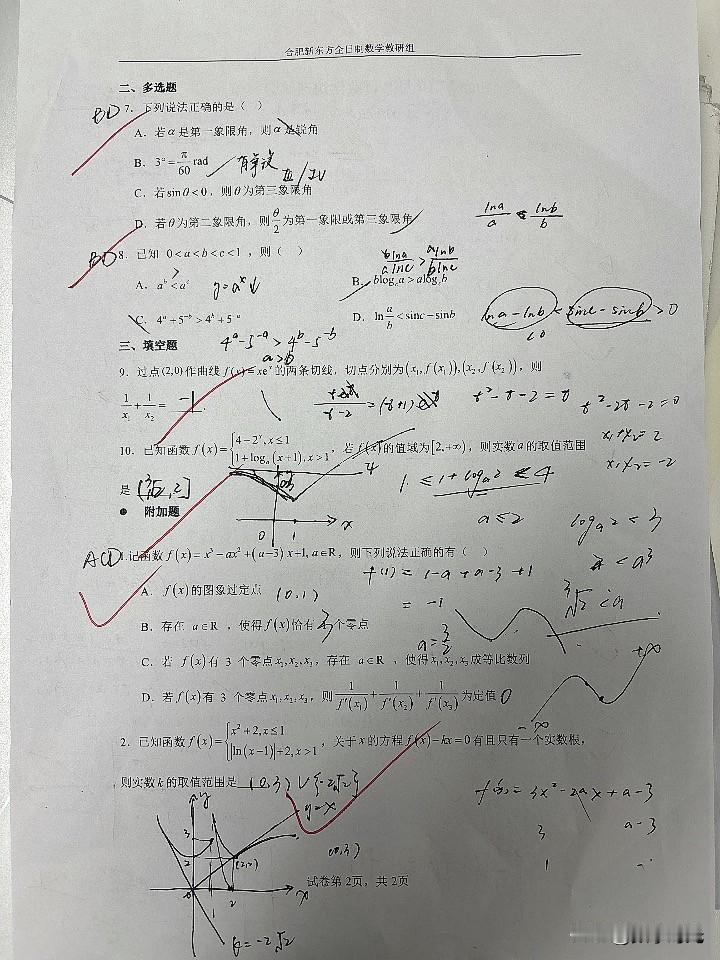 合肥新东方全日制数学教研组
二、多选题
BD 7. 下列说法正确的是（ ）
A. 若α是第一象限角，则α是锐角
B. 3°=π/60 rad
C. 若sinθ<0，则θ为第三象限角
III/IV
D. 若θ为第二象限角，则θ/2为第一象限或第三象限角
lna/a < lnb/b
BD 8. 已知 0<a<b<c<1，则（ ）
blna/alnc > alnb/blnc
A. a^b<a^c > y=a^x↓
B. blog_c a>alog_c b
C. 4^a+5^-b>4^b+5^-a
D. ln a/b<sinc−sinb
lna−lnb < sinc−sinb >0
<0
三、填空题
4^a−5^-a > 4^b−5^-b
a>b
9. 过点(2,0)作曲线f(x)=xe^x的两条切线，切点分别为(x₁,f(x₁)),(x₂,f(x₂))，则
1/x₁+1/x₂= −1.
t²−t−2=0
t²−2t−2=0
x₁+x₂=2
x₁x₂=−2
10. 已知函数f(x)={4−2^x,x≤1 1+log_a(x+1),x>1，若f(x)的值域为[2,+∞)，则实数a的取值范围
是 (∛2,2]
4
1+log_a 2 ≤ 4
x
0 1
a≤2
log_a 2<3
2<a³
∛2<a
● 附加题
ACD 1.记函数f(x)=x³−ax²+(a−3)x+1,a∈R，则下列说法正确的有（ ）
f(1)=1−a+a−3+1
=−1
A. f(x)的图象过定点 (0,1)
B. 存在 a∈R ，使得f(x)恰有2个零点
a=3/2
C. 若 f(x)有 3 个零点x₁,x₂,x₃，存在 a∈R ，使得x₁,x₂,x₃成等比数列
D. 若f(x)有 3 个零点x₁,x₂,x₃，则1/f′(x₁)+1/f′(x₂)+1/f′(x₃)为定值 0
+∞
−∞
2. 已知函数f(x)={x²+2,x≤1 |ln(x−1)|+2,x>1，关于x的方程f(x)−kx=0有且只有一个实数根，
则实数k的取值范围是 (0,3)∪{−2√2}
f′(x)=3x²−2ax+a−3
3 a−3
1
y
y=x
3
2
(2,2)
(0,3)
0 1 2 x
k=−2√2
试卷第2页，共2页